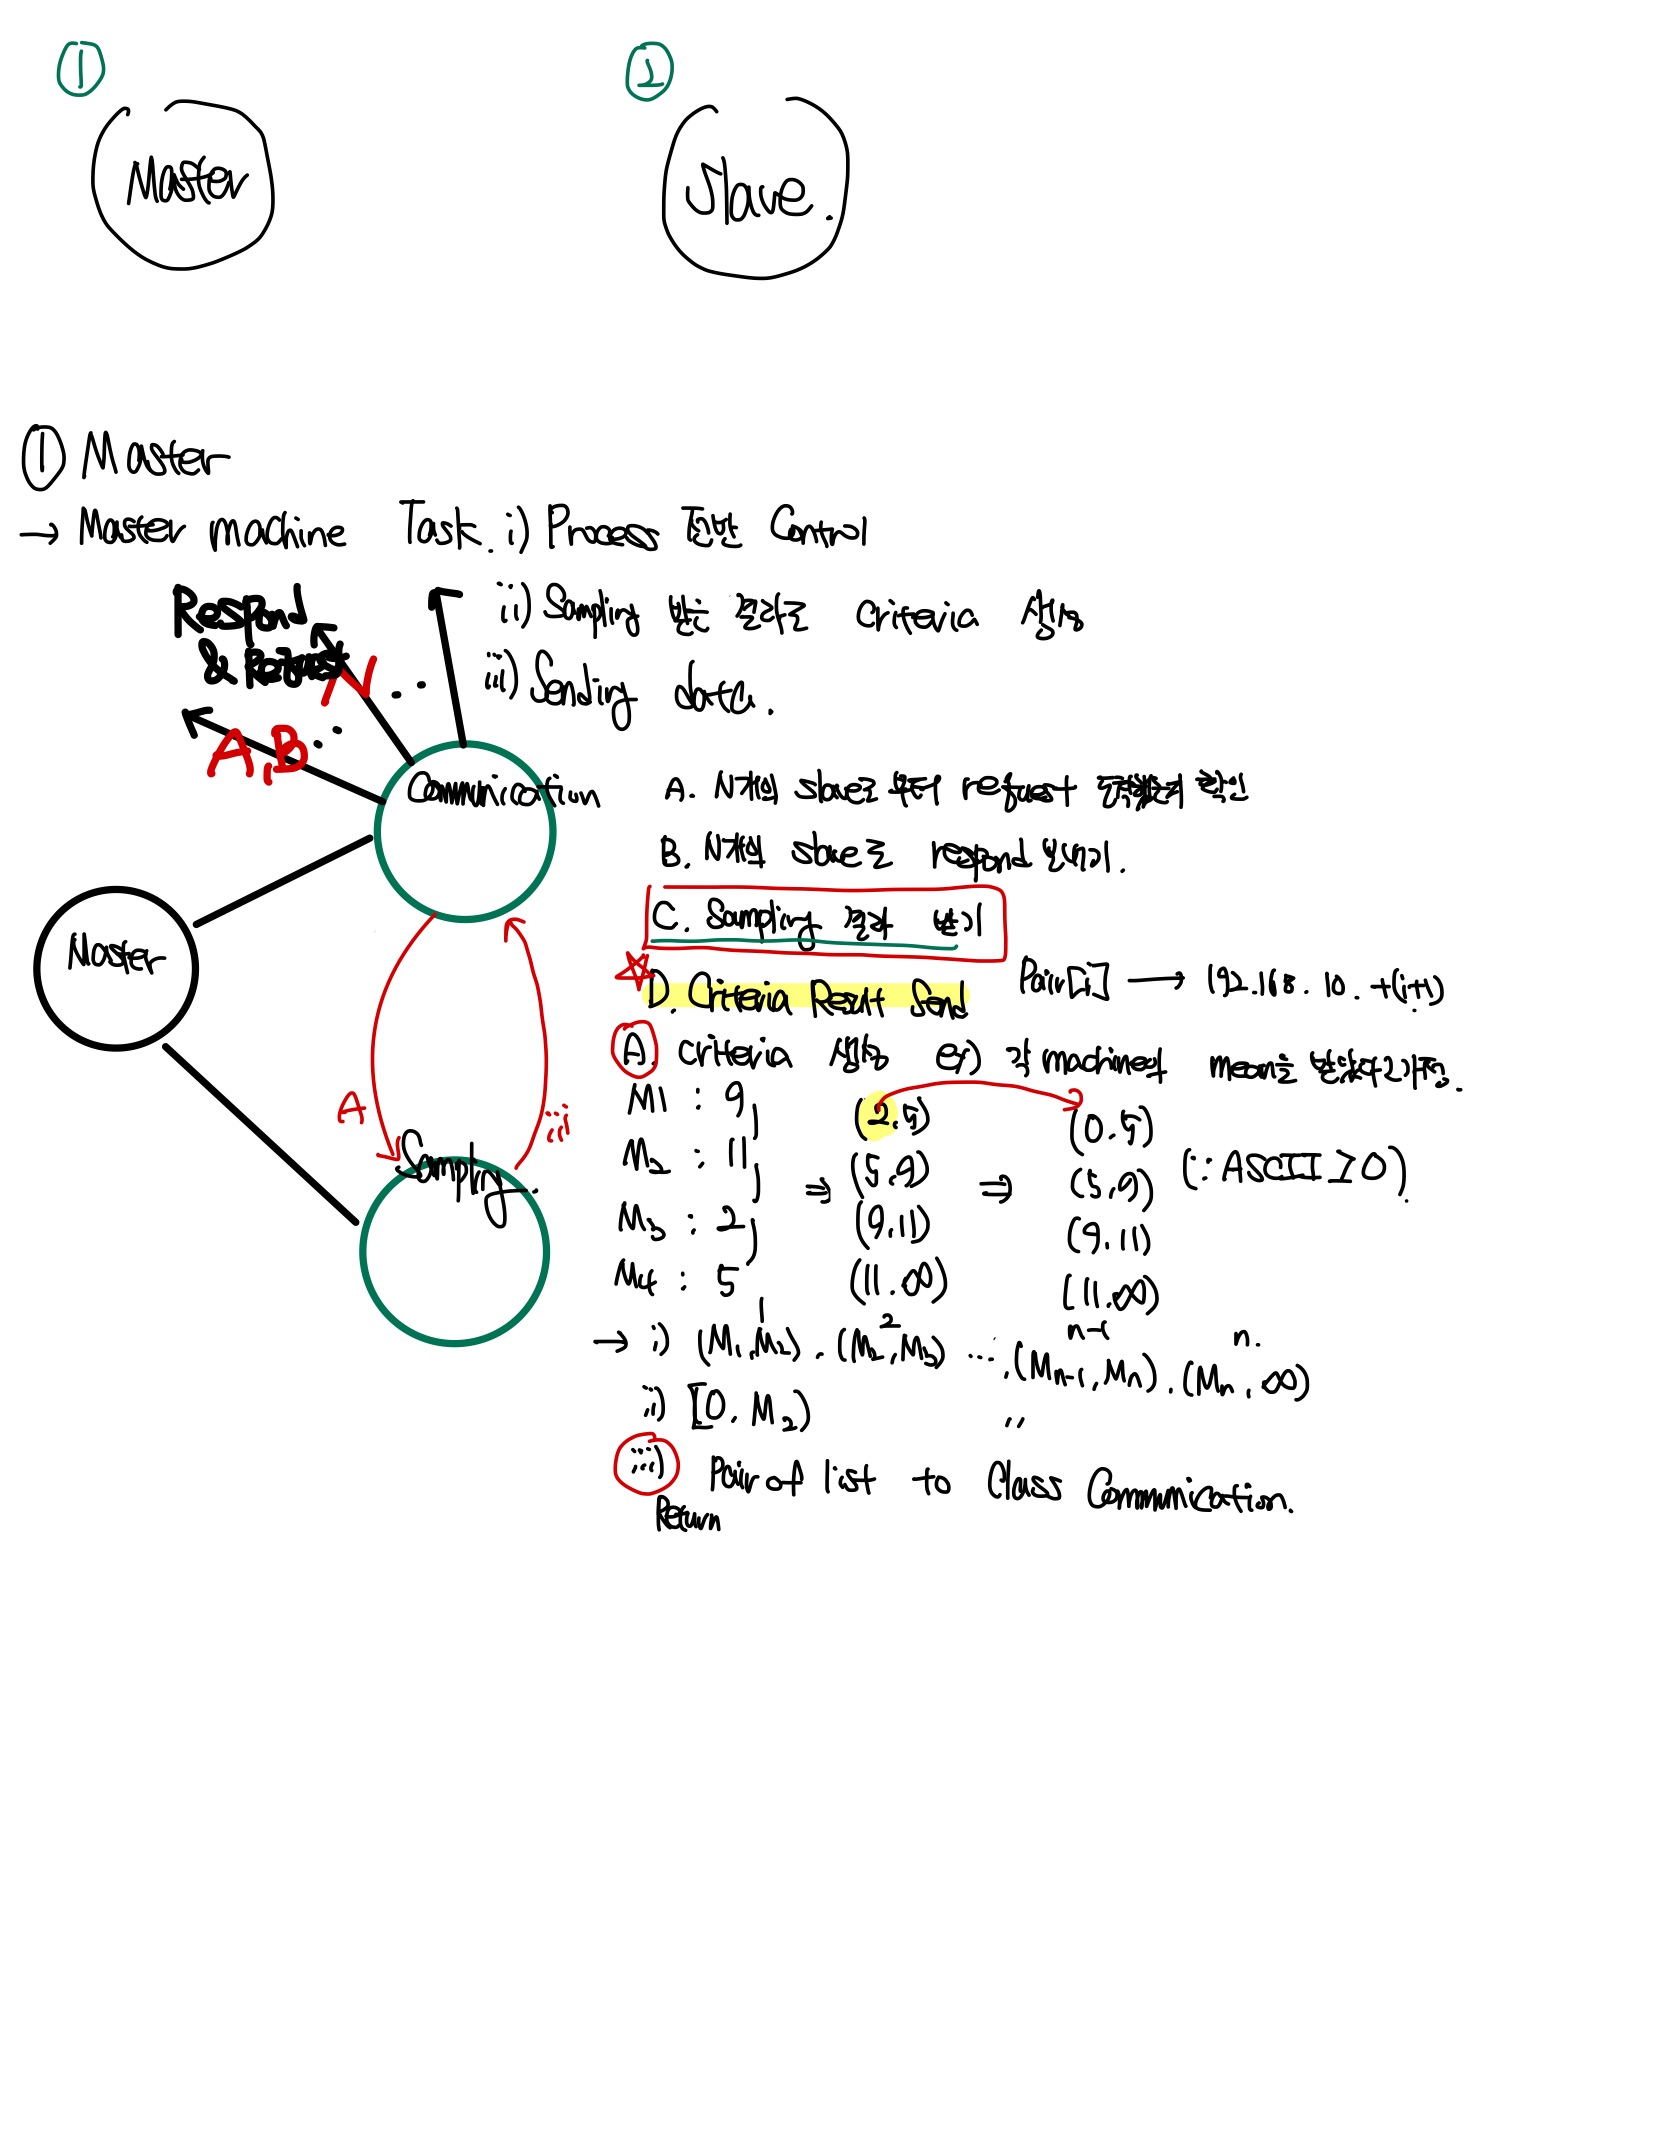 ① ②
Master Slave.
① Master
→ Master machine Task. i) Process 전반 Control
ii) Sampling 받는 결과로 Criteria 생성
iii) Sending data.
Respond
& Request
N
A,B
Communication
A. N개의 slave로 부터 request 확인
B. N개의 slave로 respond 보내기.
C. Sampling 결과 받기
D. Criteria Result Send
Pair[i] → 192.168.10.+(i+1)
Master
A
iii
Sampling.
A. criteria 생성 ex) 각 machine의 mean을 받았다고 가정.
M1 : 9, (2.5) (0.5)
M2 : 11, ⇒ (5,9) ⇒ (5,9) (∵ASCII>0).
M3 : 2, (9,11) (9.11)
M4 : 5 (11.∞) [11.∞)
1 2 n-1 n.
→ i) (M1,M2). (M2,M3) ...,(Mn-1,Mn).(Mn,∞)
ii) [0.M2) 〃
iii) Pair of list to Class Communication.
Return